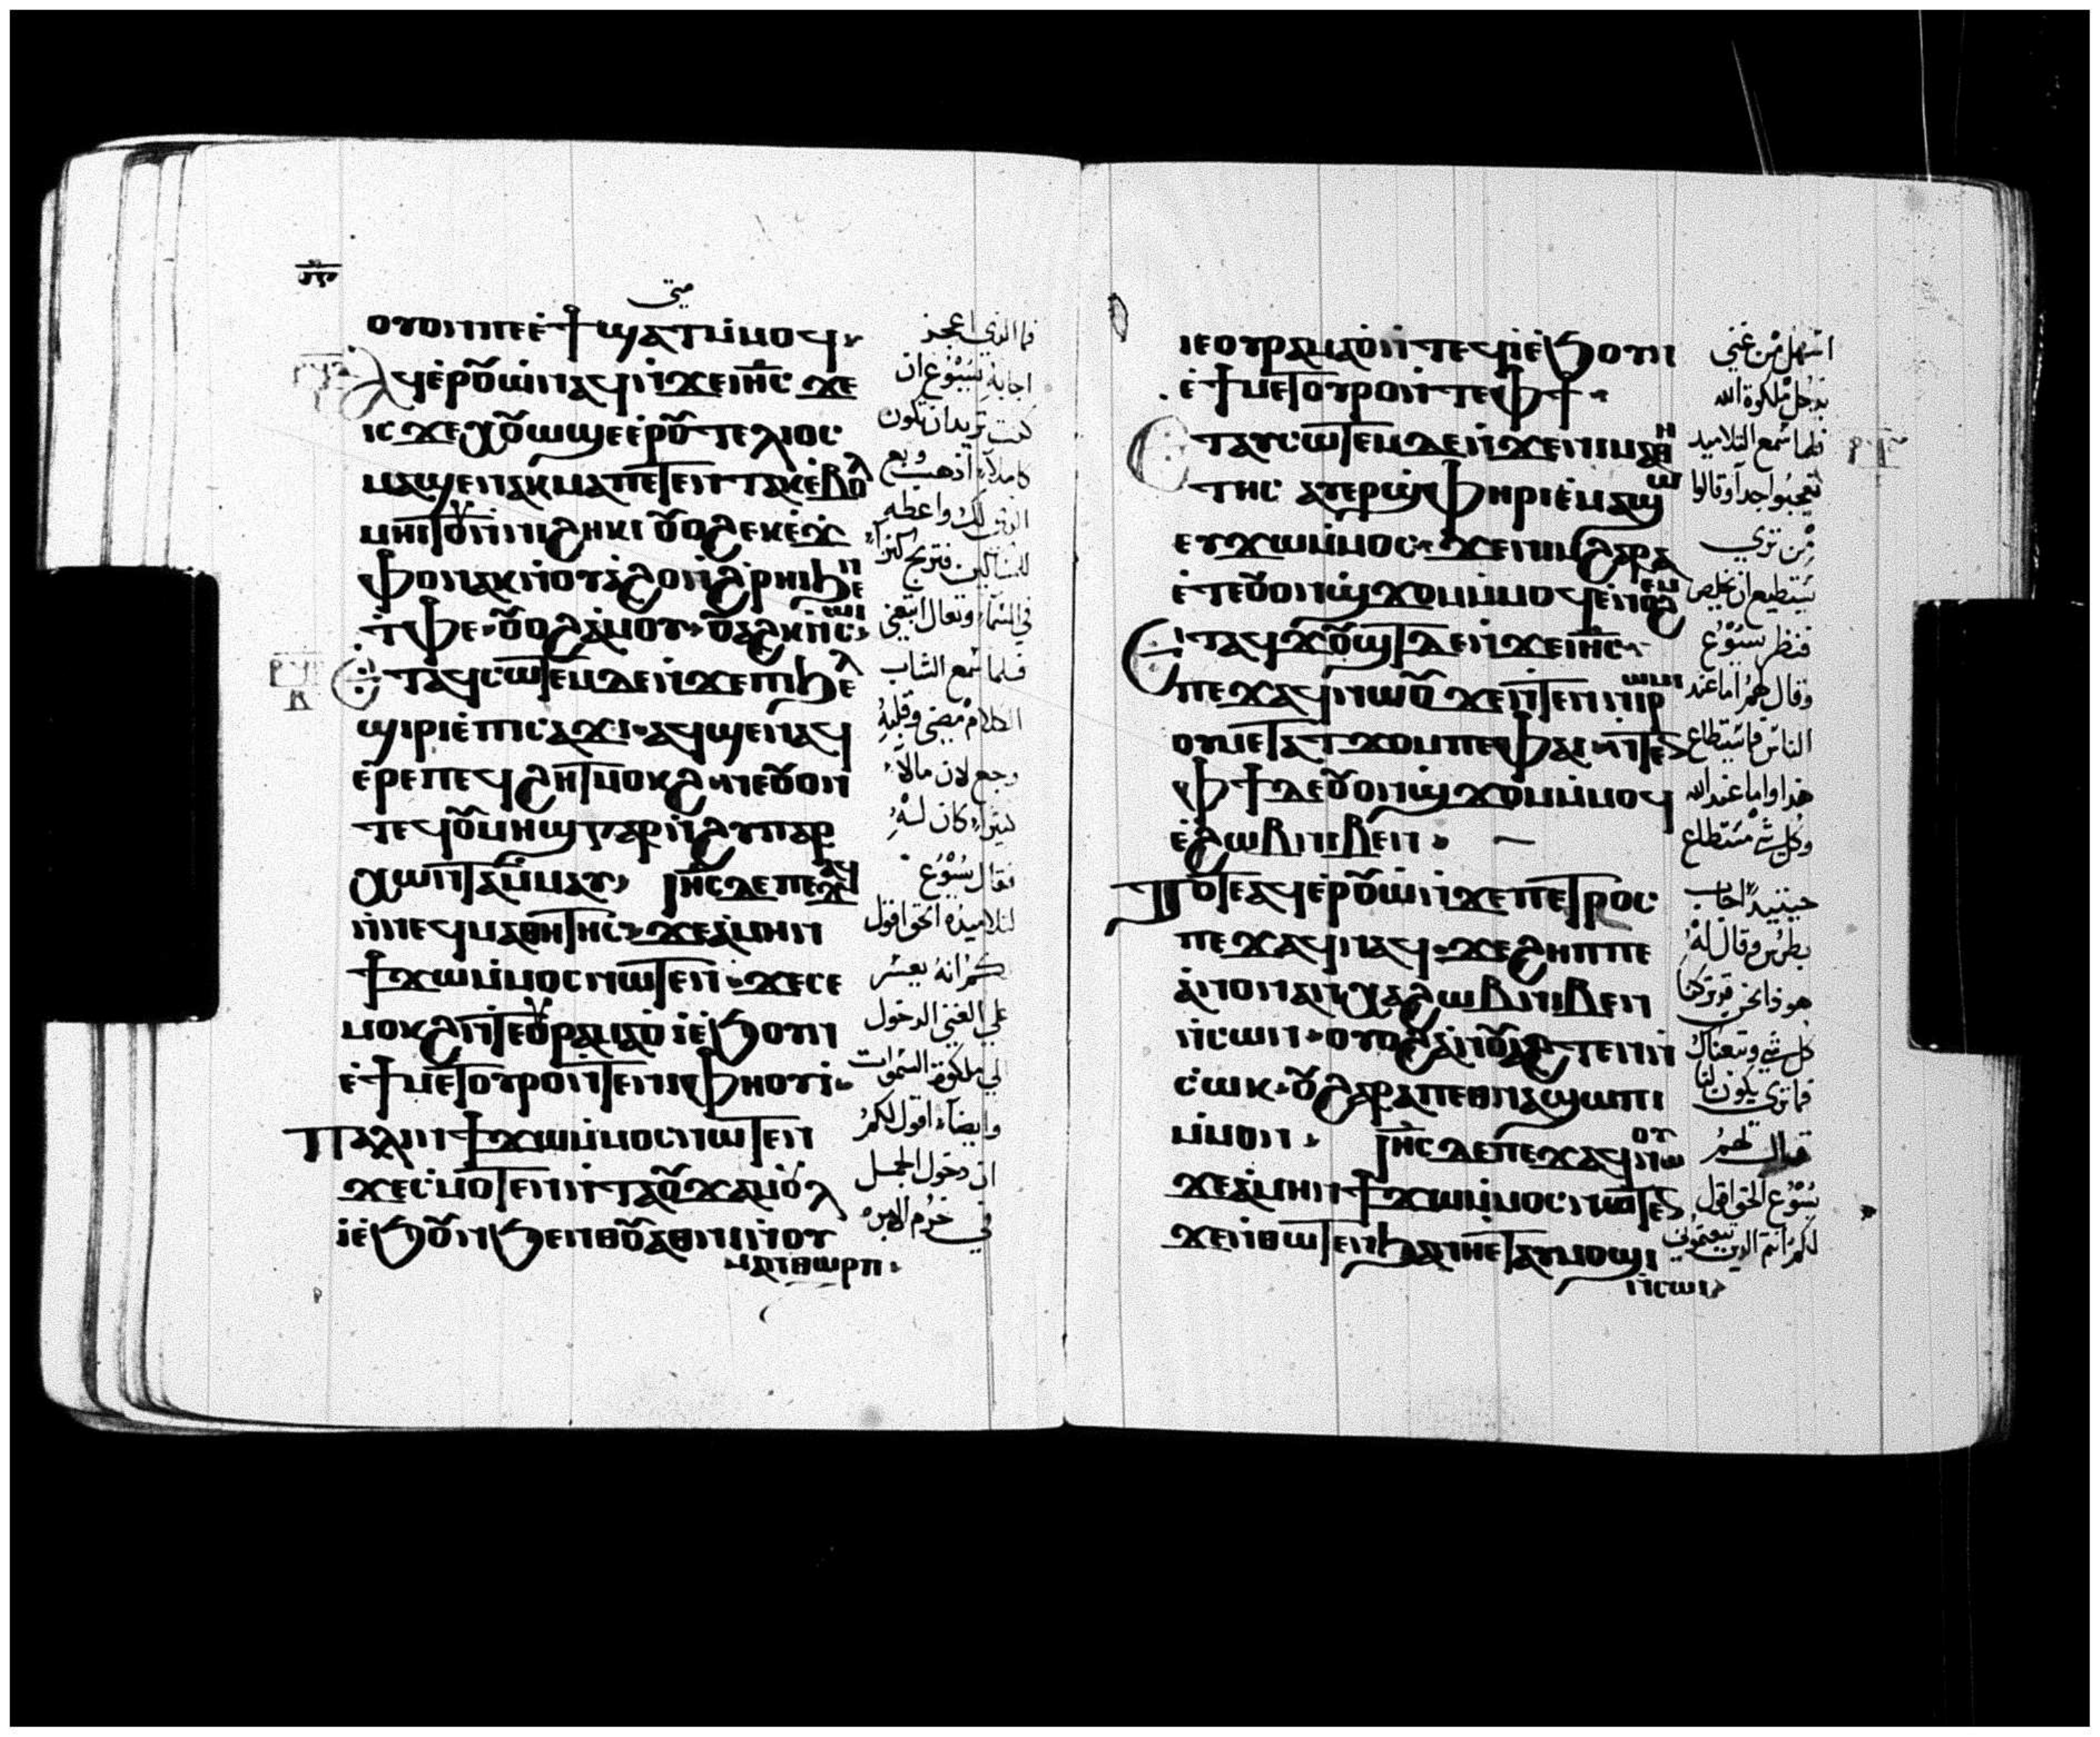 ميتى
ⲟⲩⲟⲛⲡⲉⲉ̇ϯϣⲁⲧⲙ̇ⲙⲟϥ
ⲁϥⲉ̇ⲣⲟⲩⲱ̇ⲛⲁϥⲛ̇ϫⲉⲓⲏ̅ⲥ̅ ϫⲉ
ⲓⲥ ϫⲉ ⲭⲟⲩⲱϣⲉⲉ̇ⲣⲟⲩⲧⲉⲗⲓⲟⲥ
ⲙⲁϣⲉⲛⲁⲕⲙⲁⲡⲉⲧⲉⲛⲧⲁⲕⲉ̇ⲃⲟⲗ
ⲙⲏⲓⲧⲟⲩⲛ̇ⲛⲓϩⲏⲕⲓ ⲟⲩⲟϩ ⲉⲕⲉ̇ϫ
ⲫⲟⲛⲁⲕⲛ̇ⲟⲩⲁ̇ϩⲟⲛ̇ϩ̇ⲣⲏⲓϧⲉⲛ
ⲧ̇ⲫⲉ ⲟⲩⲟϩ ⲁ̇ⲙⲟⲩ ⲟⲩⲁϩⲕⲛ̇ⲥⲱⲓ
ⲉ̇ⲧⲁϥⲥⲱⲧⲉⲙⲇⲉⲛ̇ϫⲉⲡⲓϧⲉⲗ
ϣⲓⲣⲓⲉ̇ⲡⲓⲥⲁϫⲓ ⲁϥϣⲉⲛⲁϥ
ⲉ̇ⲣⲉⲡⲉϥϩⲏⲧⲙⲟⲕϩ ⲛⲉⲟⲩⲟⲛ
ⲧⲉϥⲟⲩⲙⲏϣ ⲅⲁⲣⲛ̇ϩⲩⲡⲁⲣ
ⲭⲱⲛⲧⲁⲙ̇ⲙⲁⲩ ⲓⲏ̅ⲥ̅ ⲇⲉⲡⲉϫⲁϥ
ⲛ̇ⲛⲉϥⲙⲁⲑⲏⲧⲏⲥ ϫⲉⲁ̇ⲙⲏⲛ
ϯϫⲱⲙ̇ⲙⲟⲥⲛⲱⲧⲉⲛ ϫⲉⲥⲉ
ⲙⲟⲕϩⲛ̇ⲧⲉⲟⲩⲣⲁⲙⲁⲟ̇ ⲓ̇ⲉ̇ϧⲟⲩⲛ
ⲉ̇ϯⲙⲉⲧⲟⲩⲣⲟⲛⲧⲉⲛⲓⲫⲏⲟⲩⲓ̇
ⲡⲁⲗⲓⲛ ϯϫⲱⲙ̇ⲙⲟⲥⲛⲱⲧⲉⲛ
ϫⲉⲥ̇ⲙⲟⲧⲉⲛⲛ̇ⲧⲁⲟⲩϫⲁⲙⲟⲩⲗ
ⲓ̇ⲉ̇ϧⲟⲩⲛϧⲉⲛⲑⲟⲩⲁⲑⲛⲓⲛ̇ⲟⲩ
ⲙⲁⲛⲑⲱⲣⲡ
فما الذي اعجز
اجابه يسوع ان
كنت تريد ان تكون
كاملاً اذهب وبع
الذي لك واعطه
للمساكين فتربح كنزاً
في السماء وتعال اتبعني
فلما سمع الشاب
الكلام مضى وقلبه
وجع لان مالاً
كثيراً كان له
فقال يسوع
لتلاميذه الحق اقول
لكم انه يعسر
على الغني الدخول
الى ملكوة السموات
وايضاً اقول لكم
ان دخول الجمل
في خرم الابره
ⲓⲉⲟⲩⲣⲁⲙⲁⲟ̇ⲛ̇ⲧⲉϥⲓ̇ⲉ̇ϧⲟⲩⲛ
ⲉ̇ϯⲙⲉⲧⲟⲩⲣⲟⲛ̇ⲧⲉⲫϯ
ⲉⲧⲁⲩⲥⲱⲧⲉⲙⲇⲉⲛ̇ϫⲉⲛⲓⲙⲁⲑⲏ
ⲧⲏⲥ ⲁⲩⲉⲣϣⲫⲏⲣⲓⲉ̇ⲙⲁϣⲱ
ⲉⲩϫⲱⲙ̇ⲙⲟⲥ ϫⲉⲛⲓⲙϩⲁⲣⲁ
ⲉ̇ⲧⲉⲟⲩⲟⲛϣϫⲟⲙⲙ̇ⲙⲟϥⲉ̇ⲛⲟϩⲉⲙ
ⲉⲧⲁϥϫⲟⲩϣⲧⲇⲉⲛ̇ϫⲉⲓⲏ̅ⲥ̅
ⲡⲉϫⲁϥⲛⲱⲟⲩ ϫⲉⲛ̇ⲧⲉⲛⲛⲓⲣⲱⲙⲓ
ⲟⲩⲙⲉⲧⲁⲧϫⲟⲙⲡⲉⲫⲁⲓ ⲛ̇ⲧⲉⲛ
ⲫϯⲇⲉⲟⲩⲟⲛϣϫⲟⲙⲙ̇ⲙⲟϥ
ⲉ̇ϩⲱⲃⲛⲓⲃⲉⲛ
ⲧⲟⲧⲉⲁϥⲉ̇ⲣⲟⲩⲱ̇ⲛ̇ϫⲉⲡⲉⲧⲣⲟⲥ
ⲡⲉϫⲁϥⲛⲁϥ ϫⲉϩⲏⲡⲡⲉ
ⲁ̇ⲛⲟⲛⲁⲛⲭⲁϩⲱⲃⲛⲓⲃⲉⲛ
ⲛ̇ⲥⲱⲛ ⲟⲩⲟϩⲁ̇ⲛⲟⲩⲁϩⲧⲉⲛⲛ̇
ⲥ̇ⲱⲕ ⲟⲩϩⲁⲣⲁⲡⲉⲑⲛⲁϣⲱⲡⲓ
ⲙ̇ⲙⲟⲛ ⲓⲏ̅ⲥ̅ⲇⲉⲡⲉϫⲁϥⲛⲱⲟⲩ
ϫⲉⲁ̇ⲙⲏⲛϯϫⲱⲙ̇ⲙⲟⲥⲛⲱⲧⲉⲛ
ϫⲉⲛ̇ⲑⲱⲧⲉⲛϧⲁⲛⲏⲉⲧⲁⲩⲙⲟϣⲓ
ⲛ̇ⲥⲱⲓ
اسهل من غني
يدخل ملكوة الله
فلما سمع التلاميذ
تعجبوا جداً وقالوا
من تري
يستطيع ان يخلص
فنظر يسوع
وقال لهم اما عند
الناس فما يستطاع
هذا واما عند الله
وكل شي مستطاع
حينيذ اجاب
بطرس وقال له
هوذا نحن قد تركنا
كل شي وتبعناك
فما ترى يكون لنا
فقال لهم
يسوع الحق اقول
لكم انتم الذين تبعتموني